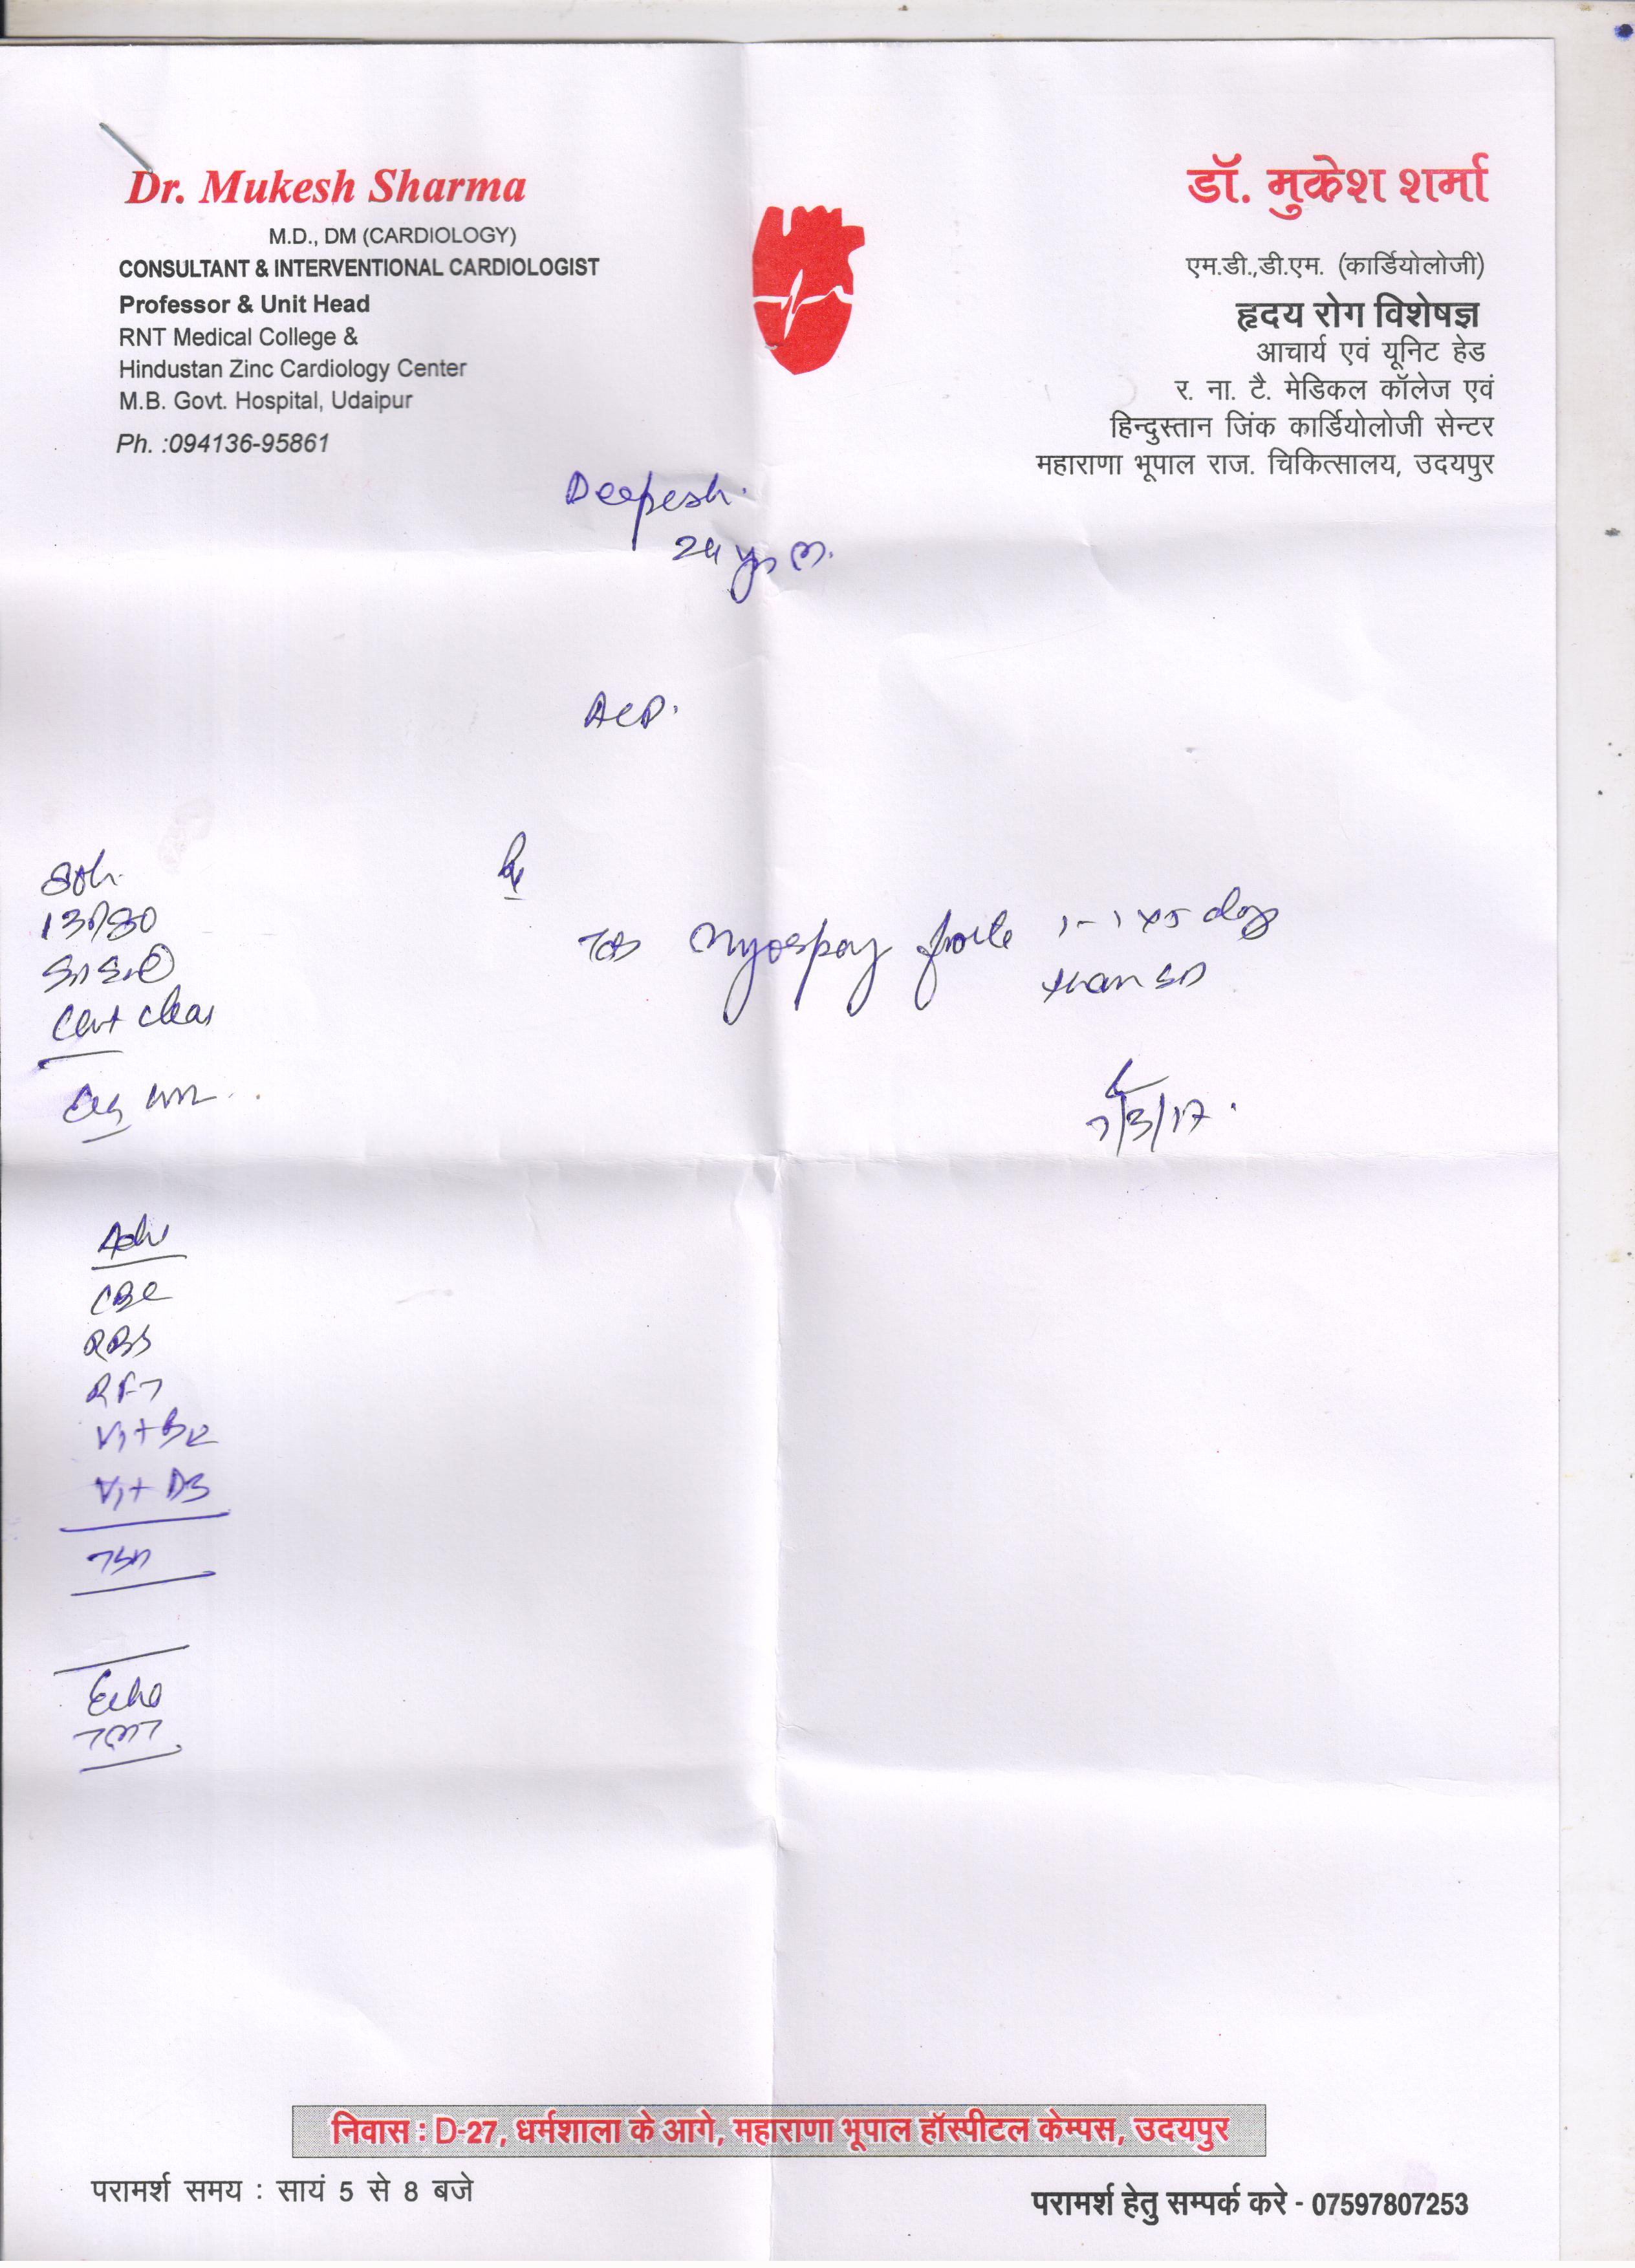 Dr. Mukesh Sharma
M.D., DM (CARDIOLOGY)
CONSULTANT & INTERVENTIONAL CARDIOLOGIST
Professor & Unit Head
RNT Medical College &
Hindustan Zinc Cardiology Center
M.B. Govt. Hospital, Udaipur
Ph. :094136-95861
डॉ. मुकेश शर्मा
एम.डी.,डी.एम. (कार्डियोलोजी)
हृदय रोग विशेषज्ञ
आचार्य एवं यूनिट हेड
र. ना. टै. मेडिकल कॉलेज एवं
हिन्दुस्तान जिंक कार्डियोलोजी सेन्टर
महाराणा भूपाल राज. चिकित्सालय, उदयपुर
Deepesh.
24 yrs M.
ACP.
130/80
Chest clear
Rx
Tab Myospaz forte 1-1 x 5 days
than SOS
7/3/17.
Adv
CBC
RBS
RFT
Vit B12
Vit D3
TSH
Echo
TMT
निवास : D-27, धर्मशाला के आगे, महाराणा भूपाल हॉस्पीटल केम्पस, उदयपुर
परामर्श समय : सायं 5 से 8 बजे
परामर्श हेतु सम्पर्क करे - 07597807253